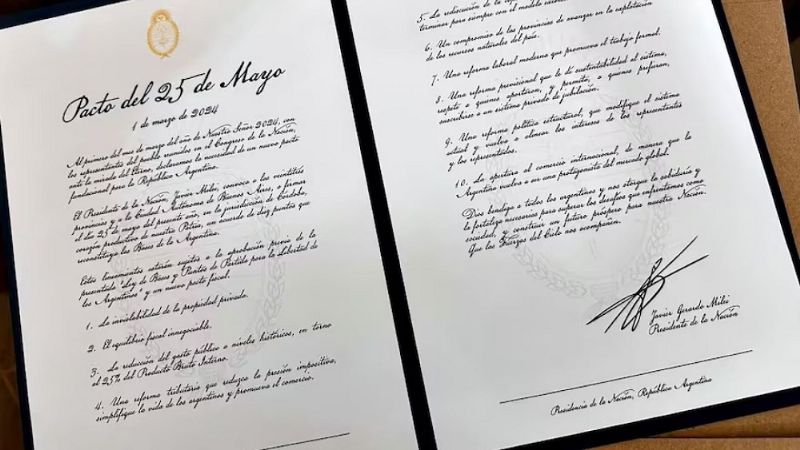 Pacto del 25 de Mayo
1 de marzo de 2024
Al primero del mes de marzo del año de Nuestro Señor 2024, con
los representantes del pueblo reunidos en el Congreso de la Nación,
ante la mirada del Eterno, declaramos la necesidad de un nuevo pacto
fundacional para la República Argentina.
El Presidente de la Nación, Javier Milei, convoca a las veintitrés
provincias y a la Ciudad Autónoma de Buenos Aires, a firmar
el día 25 de mayo del presente año, en la jurisdicción de Córdoba,
corazón productivo de nuestra Patria, un acuerdo de diez puntos que
reconstituya las Bases de la Argentina.
Estos lineamientos estarán sujetos a la aprobación previa de la
presentada "Ley de Bases y Puntos de Partida para la Libertad de
los Argentinos" y un nuevo pacto fiscal.
1. La inviolabilidad de la propiedad privada.
2. El equilibrio fiscal innegociable.
3. La reducción del gasto público a niveles históricos, en torno
al 25% del Producto Bruto Interno.
4. Una reforma tributaria que reduzca la presión impositiva,
simplifique la vida de los argentinos y promueva el comercio.
5. La rediscusión de la
termine para siempre con el modelo
6. Un compromiso de las provincias de avanzar en la explotación
de los recursos naturales del país.
7. Una reforma laboral moderna que promueva el trabajo formal.
8. Una reforma previsional que le dé sustentabilidad al sistema,
respete a quienes aportaron, y permita, a quienes prefieran,
suscribirse a un sistema privado de jubilación.
9. Una reforma política estructural, que modifique el sistema
actual y vuelva a alinear los intereses de los representantes
y los representados.
10. La apertura al comercio internacional, de manera que la
Argentina vuelva a ser una protagonista del mercado global.
Dios bendiga a todos los argentinos y nos otorgue la sabiduría y
la fortaleza necesarias para superar los desafíos que enfrentamos como
sociedad, y construir un futuro próspero para nuestra Nación.
Que las Fuerzas del Cielo nos acompañen.
Javier Gerardo Milei
Presidente de la Nación
Presidencia de la Nación, República Argentina